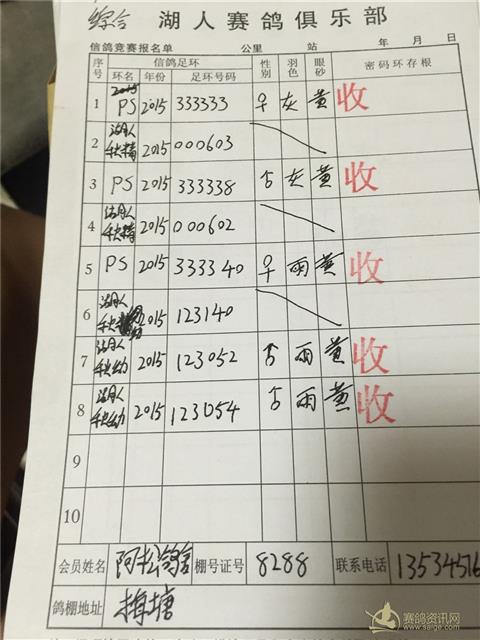 综合 湖人赛鸽俱乐部
信鸽竞赛报名单 公里 站 年 月 日
序号 信鸽足环 性别 羽色 眼砂 密码环存根
环名 年份 足环号码
1 PS 2015 333333 早 灰 黄 收
2 湖人秋精 2015 000603
3 PS 2015 333338 灰 黄 收
4 湖人秋精 2015 000602
5 PS 2015 333340 早 雨 黄 收
6 湖人秋 2015 123140
7 湖人秋幼 2015 123052 雨 黄 收
8 湖人秋幼 2015 123054 雨 黄 收
9
10
会员姓名 阿松鸽舍 棚号证号 8288 联系电话 13534516
鸽棚地址 梅塘
赛鸽资讯网
www.saige.com